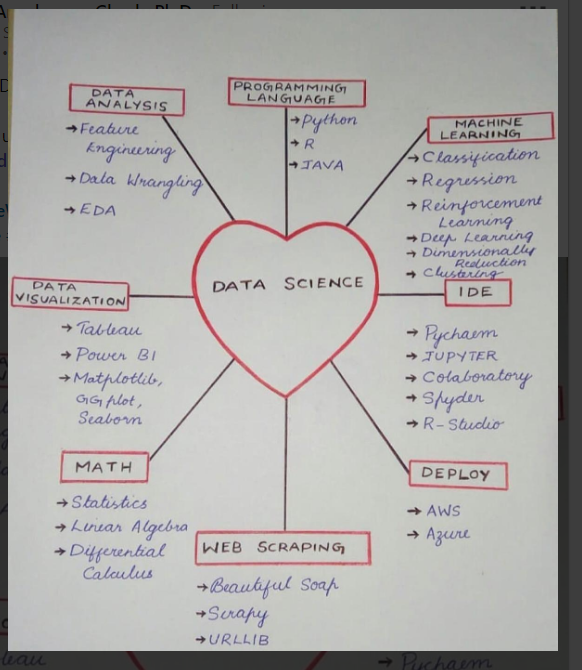 DATA
ANALYSIS
→ Feature
Engineering
→ Data Wrangling
→ EDA
PROGRAMMING
LANGUAGE
→ Python
→ R
→ JAVA
MACHINE
LEARNING
→ Classification
→ Regression
→ Reinforcement
Learning
→ Deep Learning
→ Dimensionally
Reduction
→ Clustering
DATA SCIENCE
DATA
VISUALIZATION
→ Tableau
→ Power BI
→ Matplotlib,
GG plot,
Seaborn
IDE
→ Pycharm
→ JUPYTER
→ Colaboratory
→ Spyder
→ R-Studio
MATH
→ Statistics
→ Linear Algebra
→ Differential
Calculus
WEB SCRAPING
→ Beautiful Soap
→ Scrapy
→ URLLIB
DEPLOY
→ AWS
→ Azure
→ Pycharm